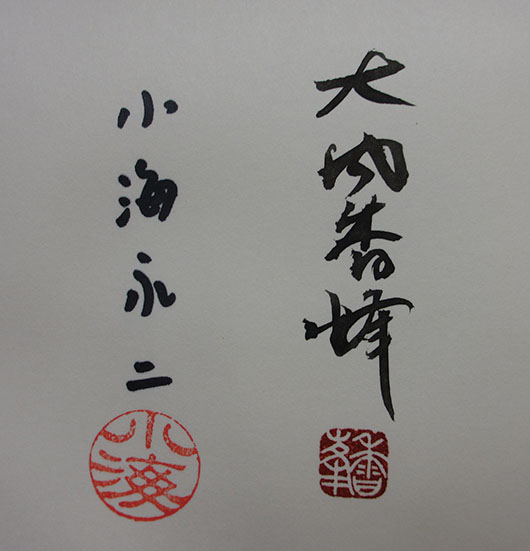 大香峰
小海永二
小海